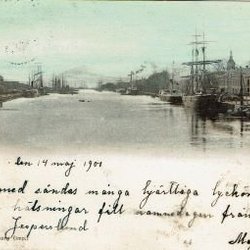 den 14 maj 1901
med sändes många hjärtliga lyckön
hälsningar till namnsdagen från
Jespersund